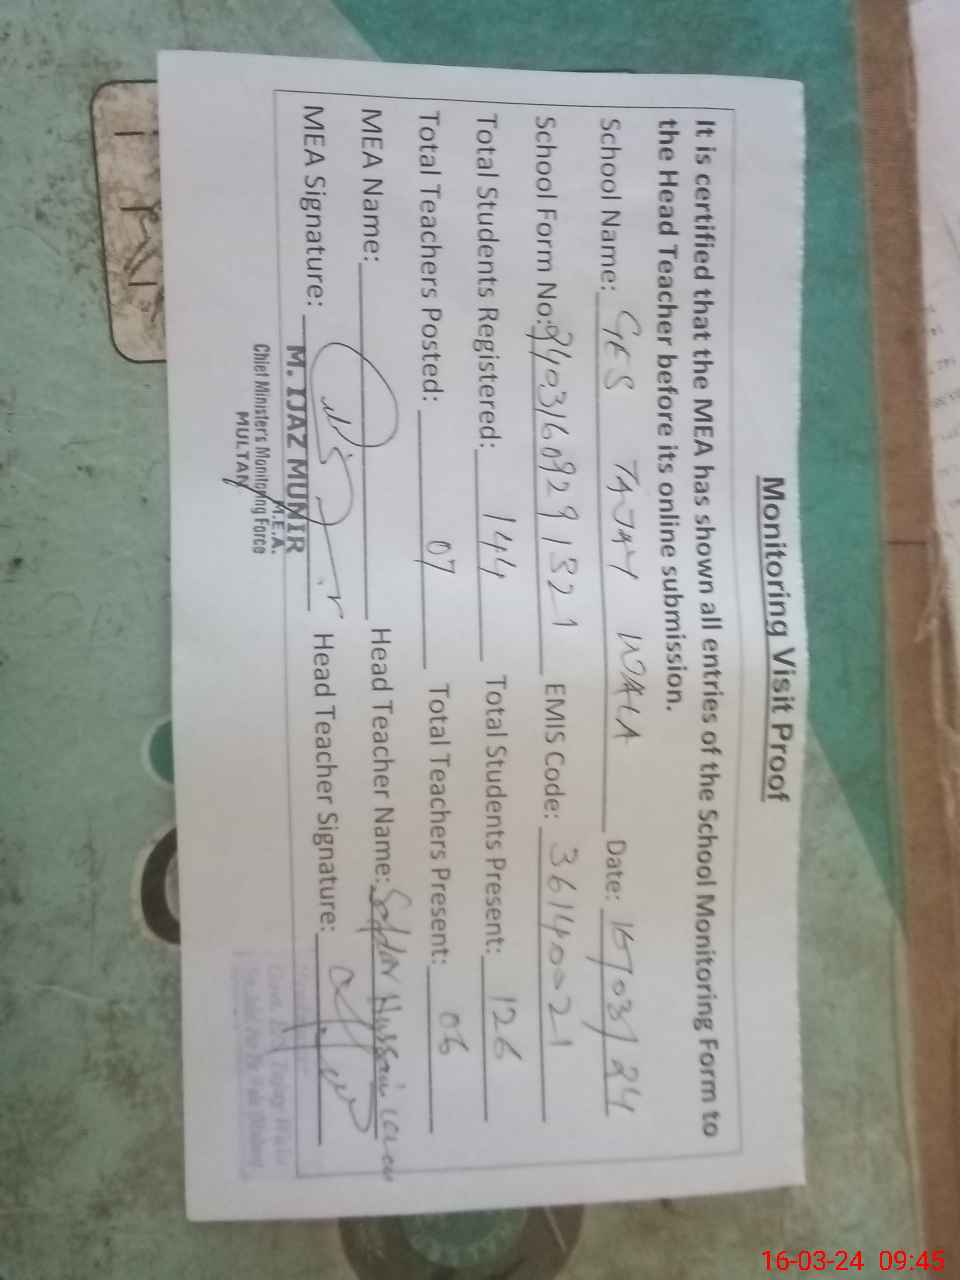 Monitoring Visit Proof
It is certified that the MEA has shown all entries of the School Monitoring Form to
the Head Teacher before its online submission.
School Name: GES TAJAY WALA Date: 15/03/24
School Form No: EMIS Code: 36140021
Total Students Registered: 144 Total Students Present: 126
Total Teachers Posted: 07 Total Teachers Present: 06
MEA Name: Head Teacher Name: Safdar Hussain
MEA Signature: Head Teacher Signature:
M. IJAZ MUNIR
M.E.A.
Chief Minister's Monitoring Force
MULTAN
16-03-24 09:45